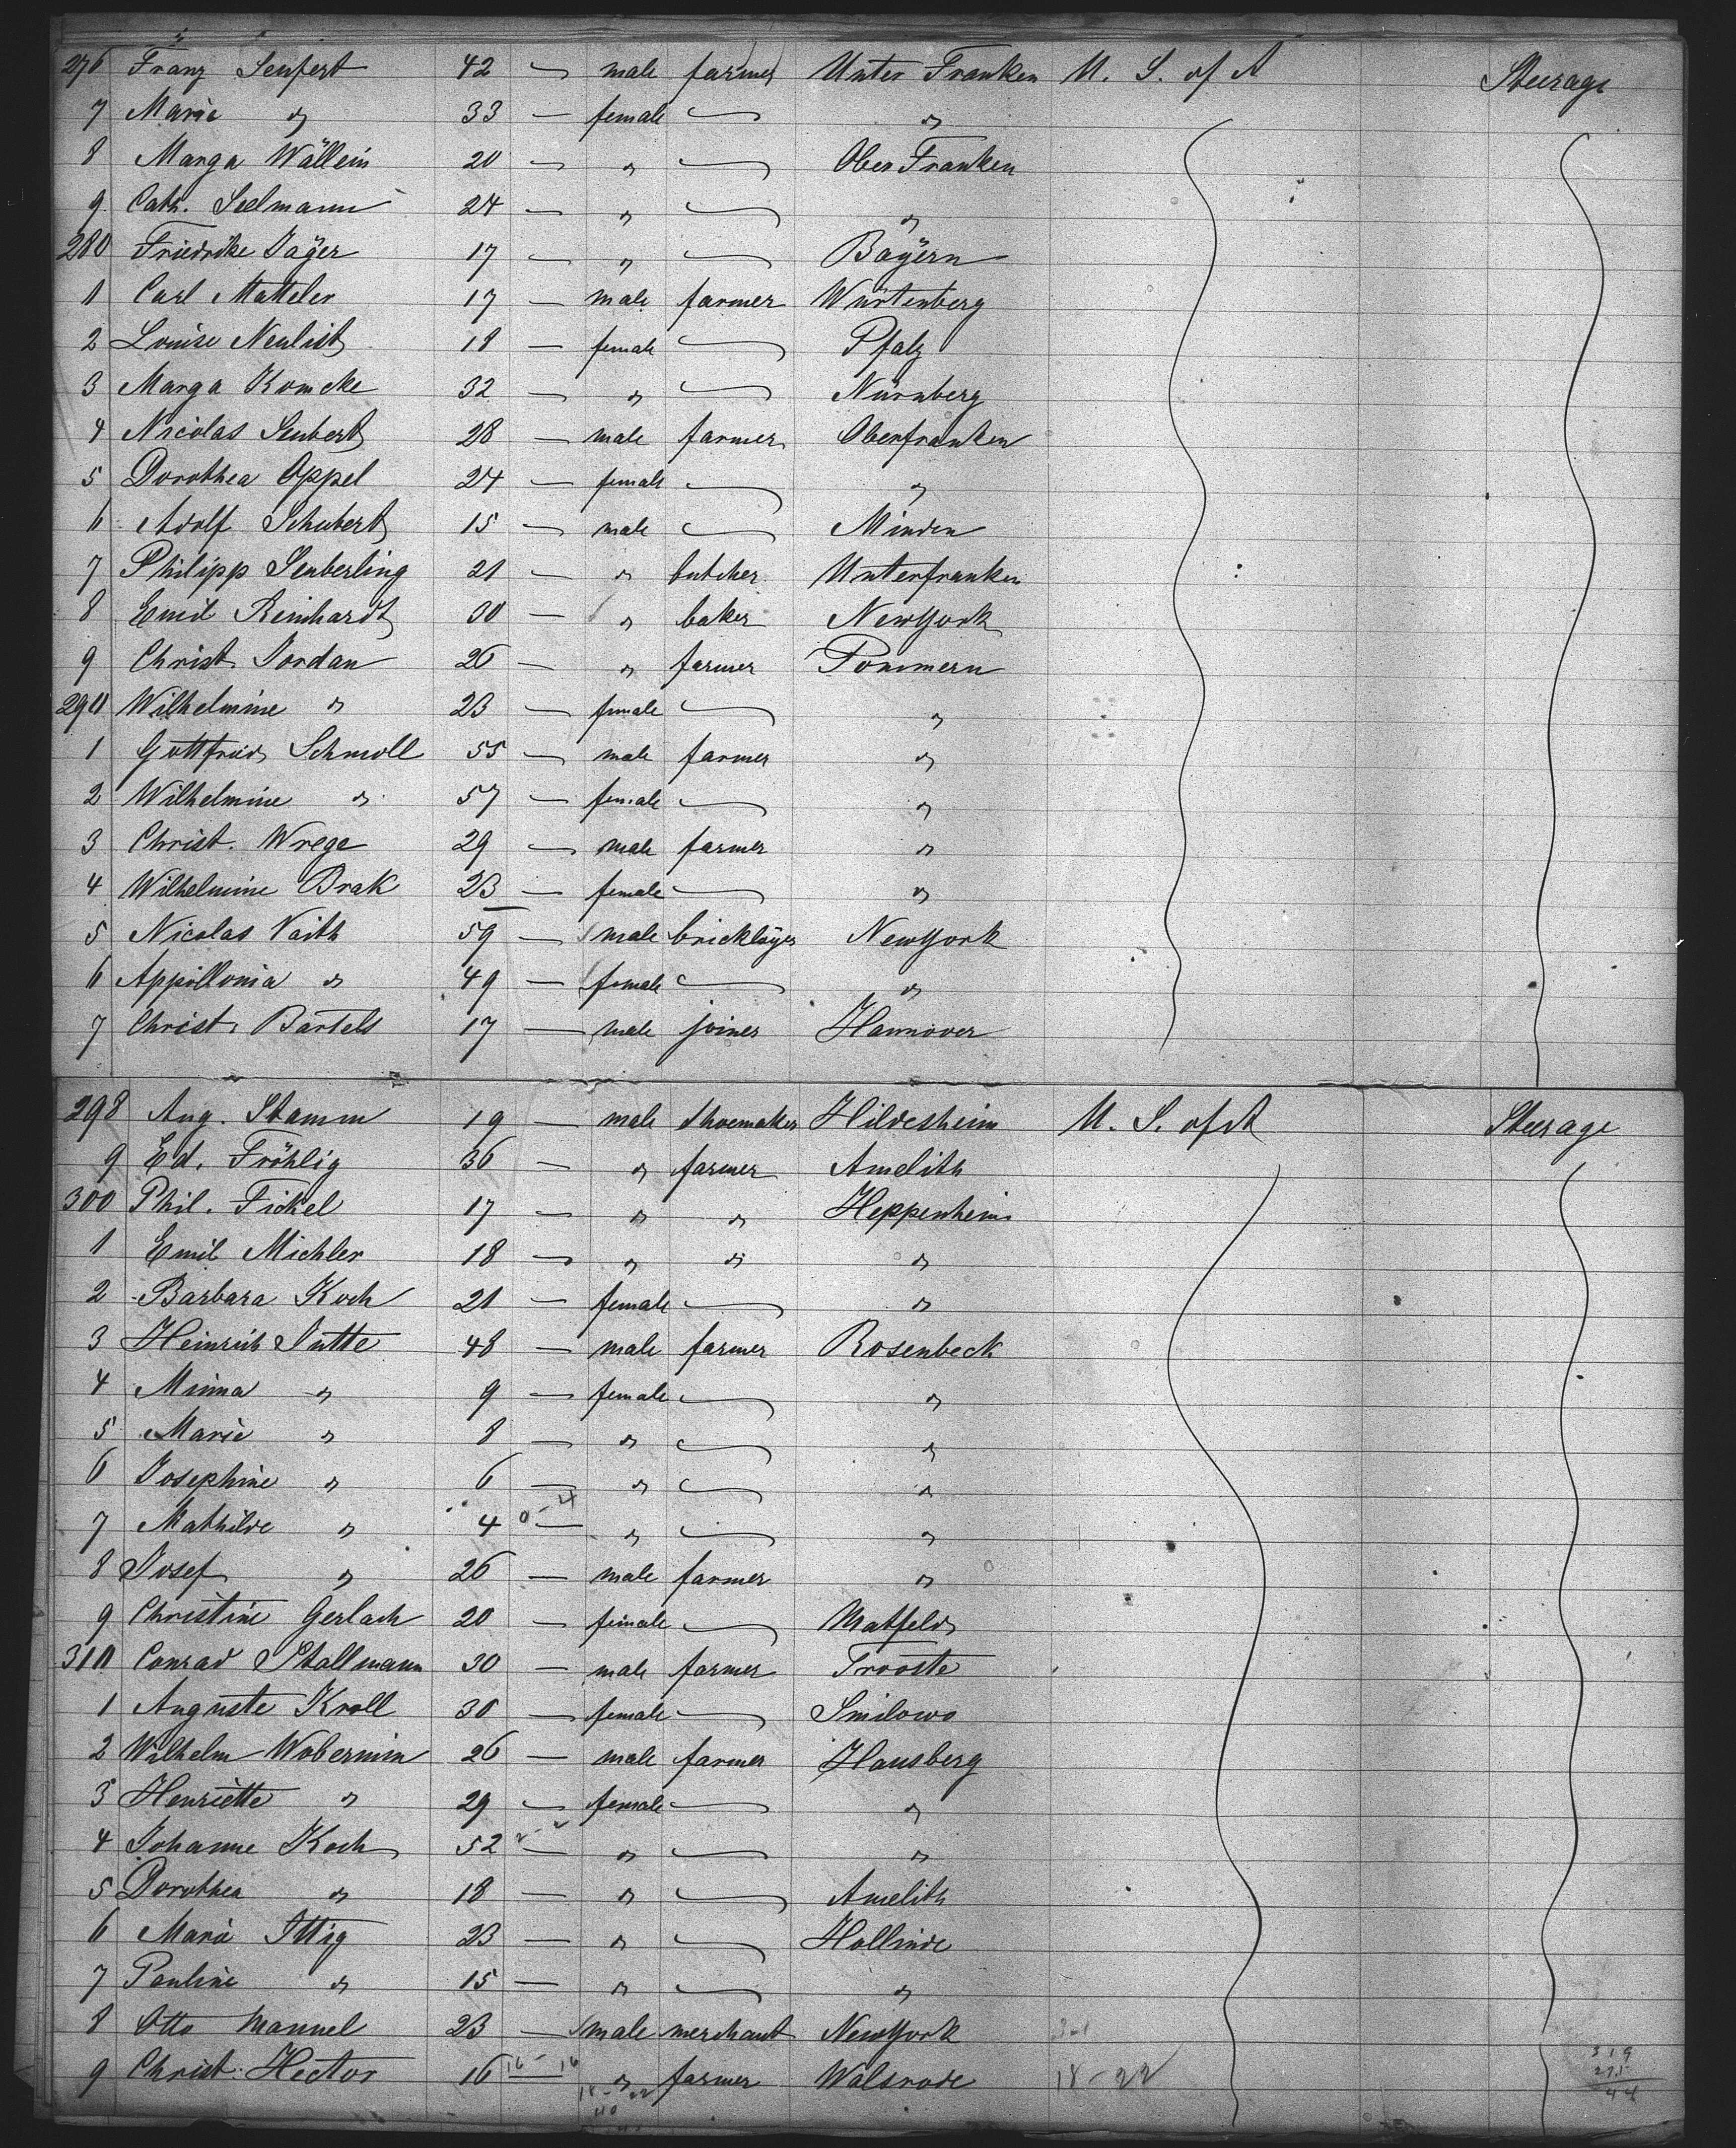 276 Franz Seufert 42 — male farmer Unter Franken U. S. of A Steerage
7 Marie " 33 — female — "
8 Marga Wällein 20 — " — Ober Franken
9 Cath. Seelmann 24 — " — "
280 Friedrike Jäger 17 — " — Bayern
1 Carl Matteler 17 — male farmer Würtenberg
2 Louise Neulist 18 — female — Pfalz
3 Marga Komcke 32 — " — Nürnberg
4 Nicolas Seubert 28 — male farmer Oberfranken
5 Dorothea Oppel 24 — female — "
6 Adolf Schubert 15 — male — Minden
7 Philipp Seuberling 21 — " butcher Unterfranken
8 Emil Reinhardt 30 — " baker New York
9 Christ. Jordan 26 — " farmer Pommern
290 Wilhelmine " 23 — female — "
1 Gottfried Schmoll 55 — male farmer "
2 Wilhelmine " 57 — female — "
3 Christ. Wrege 29 — male farmer "
4 Wilhelmine Brak 23 — female — "
5 Nicolas Vaith 59 — male bricklayer New York
6 Appollonia " 49 — female — "
7 Christ. Bartels 17 — male joiner Hannover
298 Aug. Stamm 19 — male Shoemaker Hildesheim U. S. of A Steerage
9 Ed. Fröhlig 36 — " farmer Amelith
300 Phil. Fickel 17 — " " Heppenheim
1 Emil Michler 18 — " " "
2 Barbara Koch 21 — female — "
3 Heinrich Jutte 48 — male farmer Rosenbeck
4 Minna " 9 — female — "
5 Marie " 8 — " — "
6 Josephine " 6 — " — "
7 Mathilde " 4 0-4 — " — "
8 Josef " 26 — male farmer "
9 Christine Gerlach 20 — female — Matfeld
310 Conrad Stallmann 30 — male farmer Trooste
1 Auguste Kroll 30 — female — Smilowo
2 Wilhelm Wobermin 26 — male farmer Hausberg
3 Henriette " 29 — female — "
4 Johanne Koch 52 — " — "
5 Dorothea " 18 — " — Amelith
6 Maria Ittig 23 — " — Hollinde
7 Pauline " 15 — " — "
8 Otto Mannel 23 — male merchant New York
9 Christ. Hector 16 16-16 — " farmer Walsrode 18-22
319
275
44
18-22